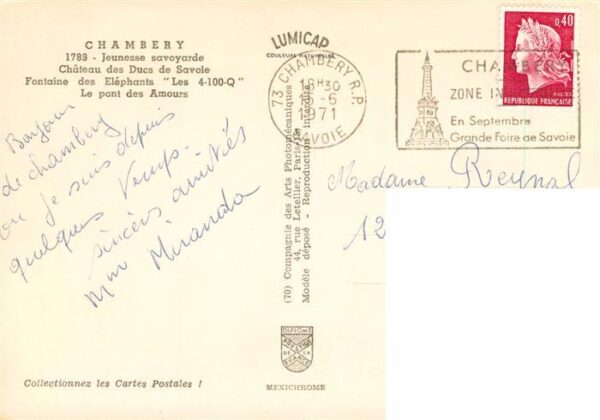 CHAMBERY
1783 - Jeunesse savoyarde
Château des Ducs de Savoie
Fontaine des Eléphants "Les 4-100-Q"
Le pont des Amours
Bonjour
de chambery
ou je suis depuis
quelques temps.
sincères amitiés
Mme Miranda
Collectionnez les Cartes Postales !
LUMICAP
COULEURS NATURELLES
(70) Compagnie des Arts Photomécaniques
44, rue Letellier, Paris-15e
Modèle déposé - Reproduction Interdite
DIPLOME
PRESTIGE
DE LA
FRANCE
MEXICHROME
73 CHAMBERY R.P.
18H30
-6
1971
SAVOIE
CHAMBERY
ZONE IN
En Septembre
Grande Foire de Savoie
0,40
REPUBLIQUE FRANÇAISE
Madame Reynal
12